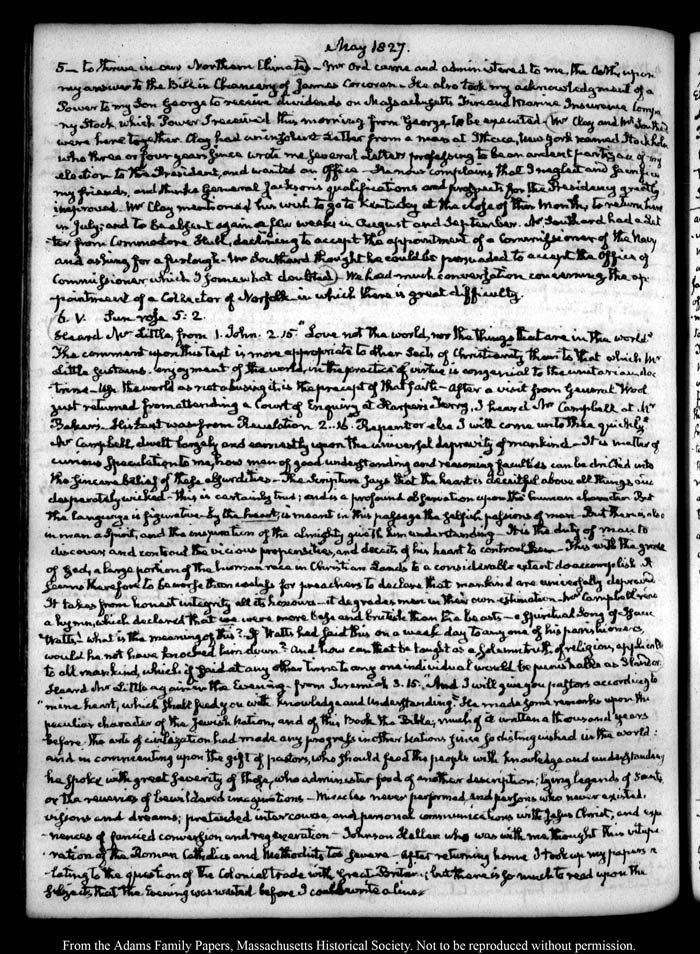 May 1827.
5— to thrive in our Northern Climates — Mr Ord came and administered to me, the Oath, upon
my answer to the Bill in Chancery of James Corcoran — He also took my acknowledgment of a
Power to my Son George to receive dividends on Massachusetts Fire and Marine Insurance Compa-
ny Stock, which Power I received this morning from George, to be executed — Mr Clay and Mr Southard
were here together. Clay had an insolent Letter from a man at Ithaca, New York named
who three or four years since wrote me several Letters professing to be an ardent partizan of my
election to the President, and wanted an Office — He now complains that I neglect and sacrifice
my friends, and thinks General Jackson's qualifications and prospects for the Presidency greatly
improved — Mr Clay mentioned his wish to go to Kentucky at the close of this Month, to return here
in July; and to be absent again a few weeks in August and September. Mr Southard had a Let-
ter from Commodore Hull, declining to accept the appointment of a Commissioner of the Navy
and asking for a furlough — Mr Southard thought he could be persuaded to accept the Office of
Commissioner which I somewhat doubted — We had much conversation concerning the ap-
pointment of a Collector of Norfolk in which there is great difficulty.
6. V. Sun rose 5. 2.
Heard Mr Little, from 1. John. 2. 15. "Love not the world, nor the things that are in the world"
The comment upon this text is more appropriate to other Sects of Christianity than to that which Mr
Little sustains. enjoyment of the world, in the practice of virtue is congenial to the unitarian doc-
trine — Use the world as not abusing it, is the precept of that faith — after a visit from General Wool
just returned from attending a Court of Enquiry at Harpers-Ferry, I heard Mr Campbell at Mr
Baker's. His text was from Revelation 2. 16. "Repent or else I will come unto thee quickly"
Mr Campbell, dwelt largely and earnestly upon the universal depravity of mankind — It is matter of
curious speculation to me, how men of good understanding and reasoning faculties can be drilled into
the sincere belief of these absurdities — The Scripture says that the heart is deceitful above all things and
desperately wicked — this is certainly true; and is a profound observation upon the human character. But
the language is figurative. by the heart, is meant in this passage the selfish passions of man. But there is also
in man a Spirit, and the inspiration of the almighty giveth him understanding — It is the duty of man to
discover and controul the vicious propensities, and deceits of his heart to controul them — This with the grace
of God, a large portion of the human race in Christian Lands to a considerable extent do accomplish. It
seems therefore to be worse than useless for preachers to declare that mankind are universally depraved
It takes from honest integrity all its honours — it degrades men in their own estimation — Mr Campbell read
a hymn, which declared that we were more base and brutish than the beasts — a Spiritual Song of Isaac
Watts — what is the meaning of this? If Watts had said this on a week day to any one of his parishioners,
would he not have knocked him down? And how can that be taught as a solemn truth of religion, applicable
to all mankind, which if said at any other time to any one individual would be punishable as slander.
Heard Mr Little again in the Evening. from Jeremiah 3. 15. "And I will give you pastors according to
"mine heart, which shall feed you with knowledge and understanding." He made some remarks upon the
peculiar character of the Jewish Nation, and of this Book the Bible; much of it written a thousand years
before. The arts of civilization had made any progress in other Nations since so distinguished in the world:
and in commenting upon the gift of pastors, who should feed the people with knowledge and understanding
he spoke with great severity of those, who administer food of another description; lying legends of Saints,
or the reveries of bewildered imaginations — Miracles never performed, and persons who never existed.
visions and dreams; pretended intercourse, and personal communications with Jesus Christ, and expe-
riences of fancied conversion and regeneration — Johnson Hellen who was with me thought this vitupe-
ration of the Roman Catholics and Methodists too severe — after returning home I took up my papers re-
lating to the question of the Colonial trade with Great Britain; but there is so much to read upon the
subject, that the Evening was wasted before I could write a line.
From the Adams Family Papers, Massachusetts Historical Society. Not to be reproduced without permission.